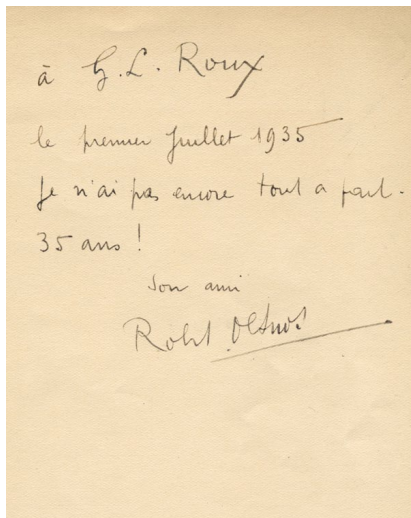 à G. L. Roux
le premier Juillet 1935
Je n'ai pas encore tout a fait
35 ans !
Son ami
Robert Desnos